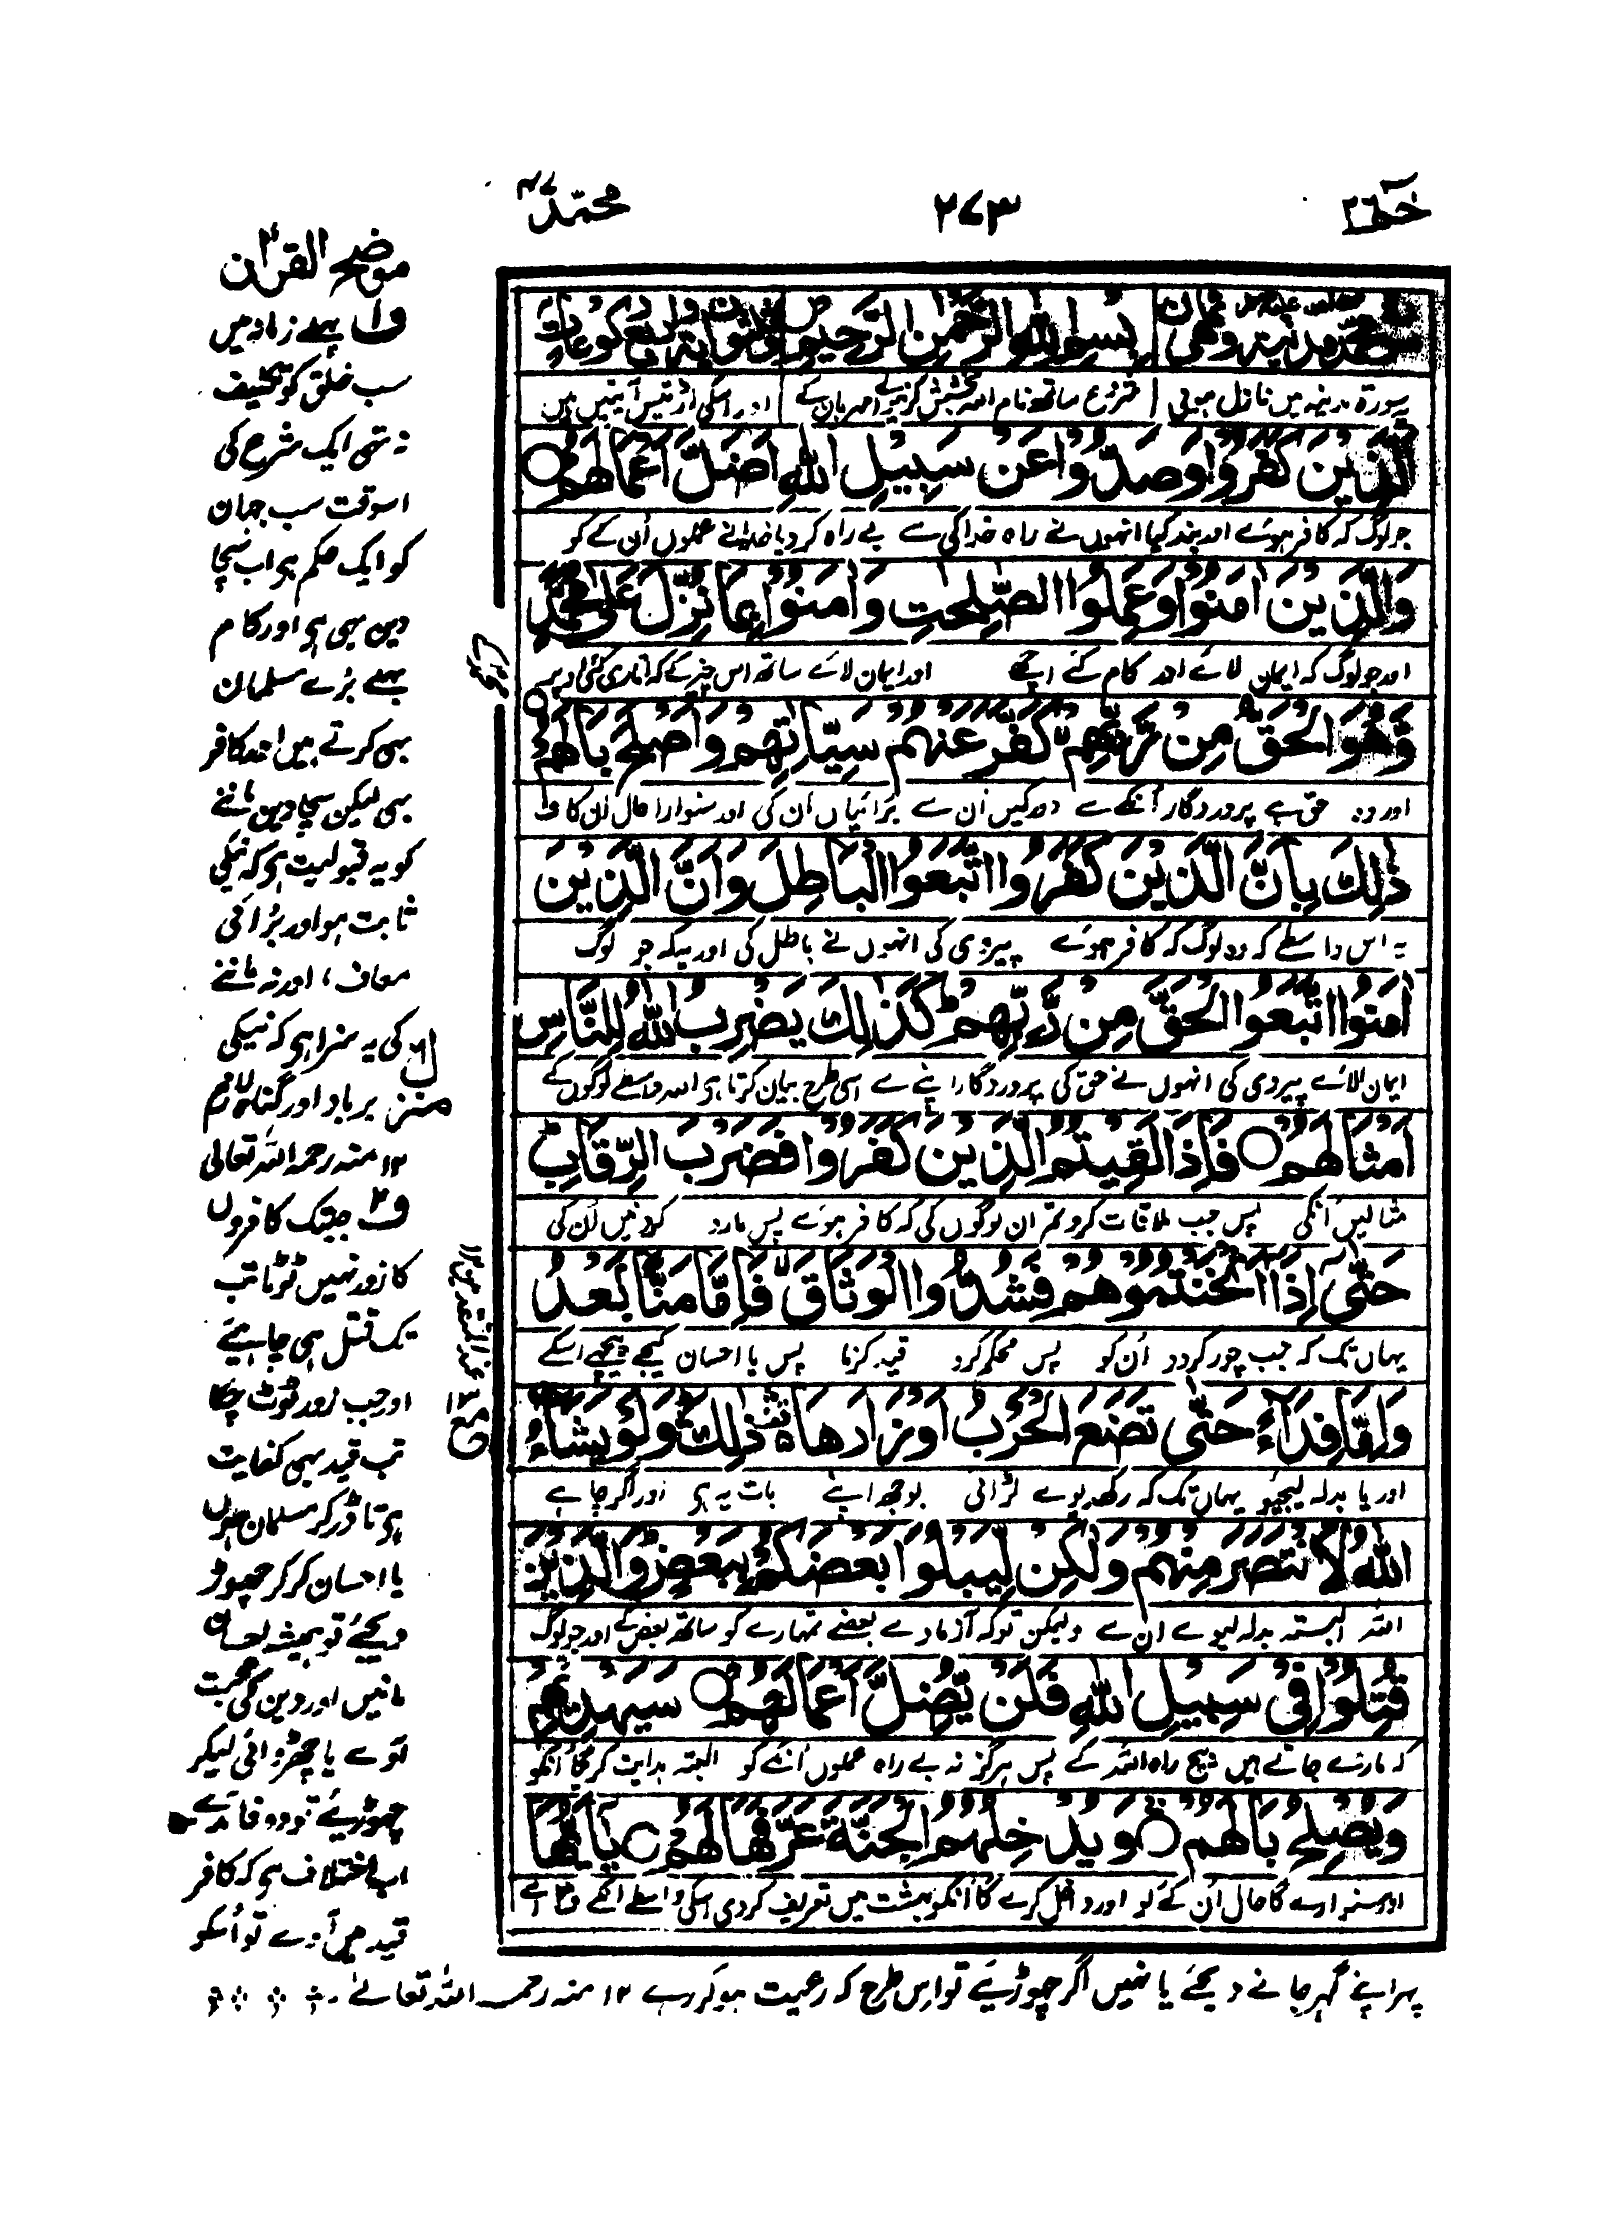 حٰمٓ ٢٦
٢٧٣
محمّد ٤٧
بِسْمِ اللهِ الرَّحْمٰنِ الرَّحِيْمِ
سورۃ مدینہ میں نازل ہوئی شروع ساتھ نام اللہ بخشش کرنیوالے مہربان کے اور اسکی اڑتیس آیتیں ہیں
اَلَّذِيْنَ كَفَرُوْا وَصَدُّوْا عَنْ سَبِيْلِ اللهِ اَضَلَّ اَعْمَالَهُمْ ○
جو لوگ کہ کافر ہوئے اور بند کیا انہوں نے راہ خدا کی سے بے راہ کر دیا خدا نے عملوں اُن کے کو
وَالَّذِيْنَ اٰمَنُوْا وَعَمِلُوا الصّٰلِحٰتِ وَاٰمَنُوْا بِمَا نُزِّلَ عَلٰى مُحَمَّدٍ
اور جو لوگ کہ ایمان لائے اور کام کئے اچھے اور ایمان لائے ساتھ اس چیز کے کہ اتاری گئی اوپر
وَّهُوَ الْحَقُّ مِنْ رَّبِّهِمْ كَفَّرَ عَنْهُمْ سَيِّاٰتِهِمْ وَاَصْلَحَ بَالَهُمْ ○
اور وہ حق ہے پروردگار اُنکے سے دور کیں اُن سے بُرائیاں اُن کی اور سنوارا حال اُن کا ف
ذٰلِكَ بِاَنَّ الَّذِيْنَ كَفَرُوا اتَّبَعُوا الْبَاطِلَ وَاَنَّ الَّذِيْنَ
یہ اس واسطے کہ وہ لوگ کہ کافر ہوئے پیروی کی انہوں نے باطل کی اور یہکہ جو لوگ
اٰمَنُوا اتَّبَعُوا الْحَقَّ مِنْ رَّبِّهِمْ كَذٰلِكَ يَضْرِبُ اللهُ لِلنَّاسِ
ایمان لائے پیروی کی انہوں نے حق کی پروردگار اپنے سے اسی طرح بیان کرتا ہی اللہ واسطے لوگوں کے
اَمْثَالَهُمْ ○ فَاِذَا لَقِيْتُمُ الَّذِيْنَ كَفَرُوْا فَضَرْبَ الرِّقَابِ
مثالیں اُنکی پس جب ملاقات کرو تم ان لوگوں کی کہ کافر ہوئے پس مارو گردنیں اُن کی
حَتّٰى اِذَا اَثْخَنْتُمُوْهُمْ فَشُدُّوا الْوَثَاقَ فَاِمَّا مَنًّا بَعْدُ
یہاں تک کہ جب چور کردو اُن کو پس محکم کرو قید کرنا پس یا احسان کیجے پیچھے اسکے
وَاِمَّا فِدَآءً حَتّٰى تَضَعَ الْحَرْبُ اَوْزَارَهَا ذٰلِكَ وَلَوْ يَشَآءُ
اور یا بدلہ لیجیو یہاں تک کہ رکھدیوے لڑائی بوجھ اپنے بات یہ ہی اور اگر چاہے
اللهُ لَانْتَصَرَ مِنْهُمْ وَلٰكِنْ لِّيَبْلُوَا۟ بَعْضَكُمْ بِبَعْضٍ وَالَّذِيْنَ
اللہ البتہ بدلہ لیوے ان سے ولیکن توکہ آزمادے بعضے تمہارے کو ساتھ بعض کے اور جو لوگ
قُتِلُوْا فِيْ سَبِيْلِ اللهِ فَلَنْ يُّضِلَّ اَعْمَالَهُمْ ○ سَيَهْدِيْهِمْ
کہ مارے جاتے ہیں بیچ راہ اللہ کے پس ہرگز نہ بے راہ عملوں اُنکے کو البتہ ہدایت کرےگا اُنکو
وَيُصْلِحُ بَالَهُمْ ○ وَيُدْخِلُهُمُ الْجَنَّةَ عَرَّفَهَا لَهُمْ ○ يٰٓاَيُّهَا
اور سنوارے گا حال اُن کے کو اور داخل کرے گا اُنکو بہشت میں تعریف کردی اسکی واسطے انکے اے
موضح القرآن
ف١ پہلے زمانہ میں
سب خلق کو تکلیف
نہ تھی ایک شرع کی
اسوقت سب جہان
کو ایک حکم ہی اب سچا
دین یہی ہی اور کام
بھلے بُرے مسلمان
بھی کرتے ہیں اور کافر
بھی لیکن سچا دین ماننے
کو یہ قبولیت ہی کہ نیکی
ثابت ہو اور بُرائی
معاف، اور نہ ماننے
کی یہ سزا ہی کہ نیکی
برباد اور گناہ لازم
١٢ منہ رحمہ اللہ تعالی
ف٢ جبتک کافروں
کا زور نہیں ٹوٹا تب
تک قتل ہی چاہیئے
اور جب زور ٹوٹ چکا
تب قید بھی کفایت
ہی تا ڈر کر مسلمان ہوں
یا احسان کر کر چھوڑ
دیجئے تو ہمیشہ احسان
مانیں اور دین کی محبت
آوے یا چھڑوائی لیکر
چھوڑیے تو دو فائدے
اب اختلاف ہی کہ کافر
قید میں آوے تو اُسکو
پھر اپنے گھر جانے دیجئے یا نہیں اگر چھوڑیے تو اس طرح کہ رعیت ہو کر رہے ١٢ منہ رحمہ اللہ تعالیٰ